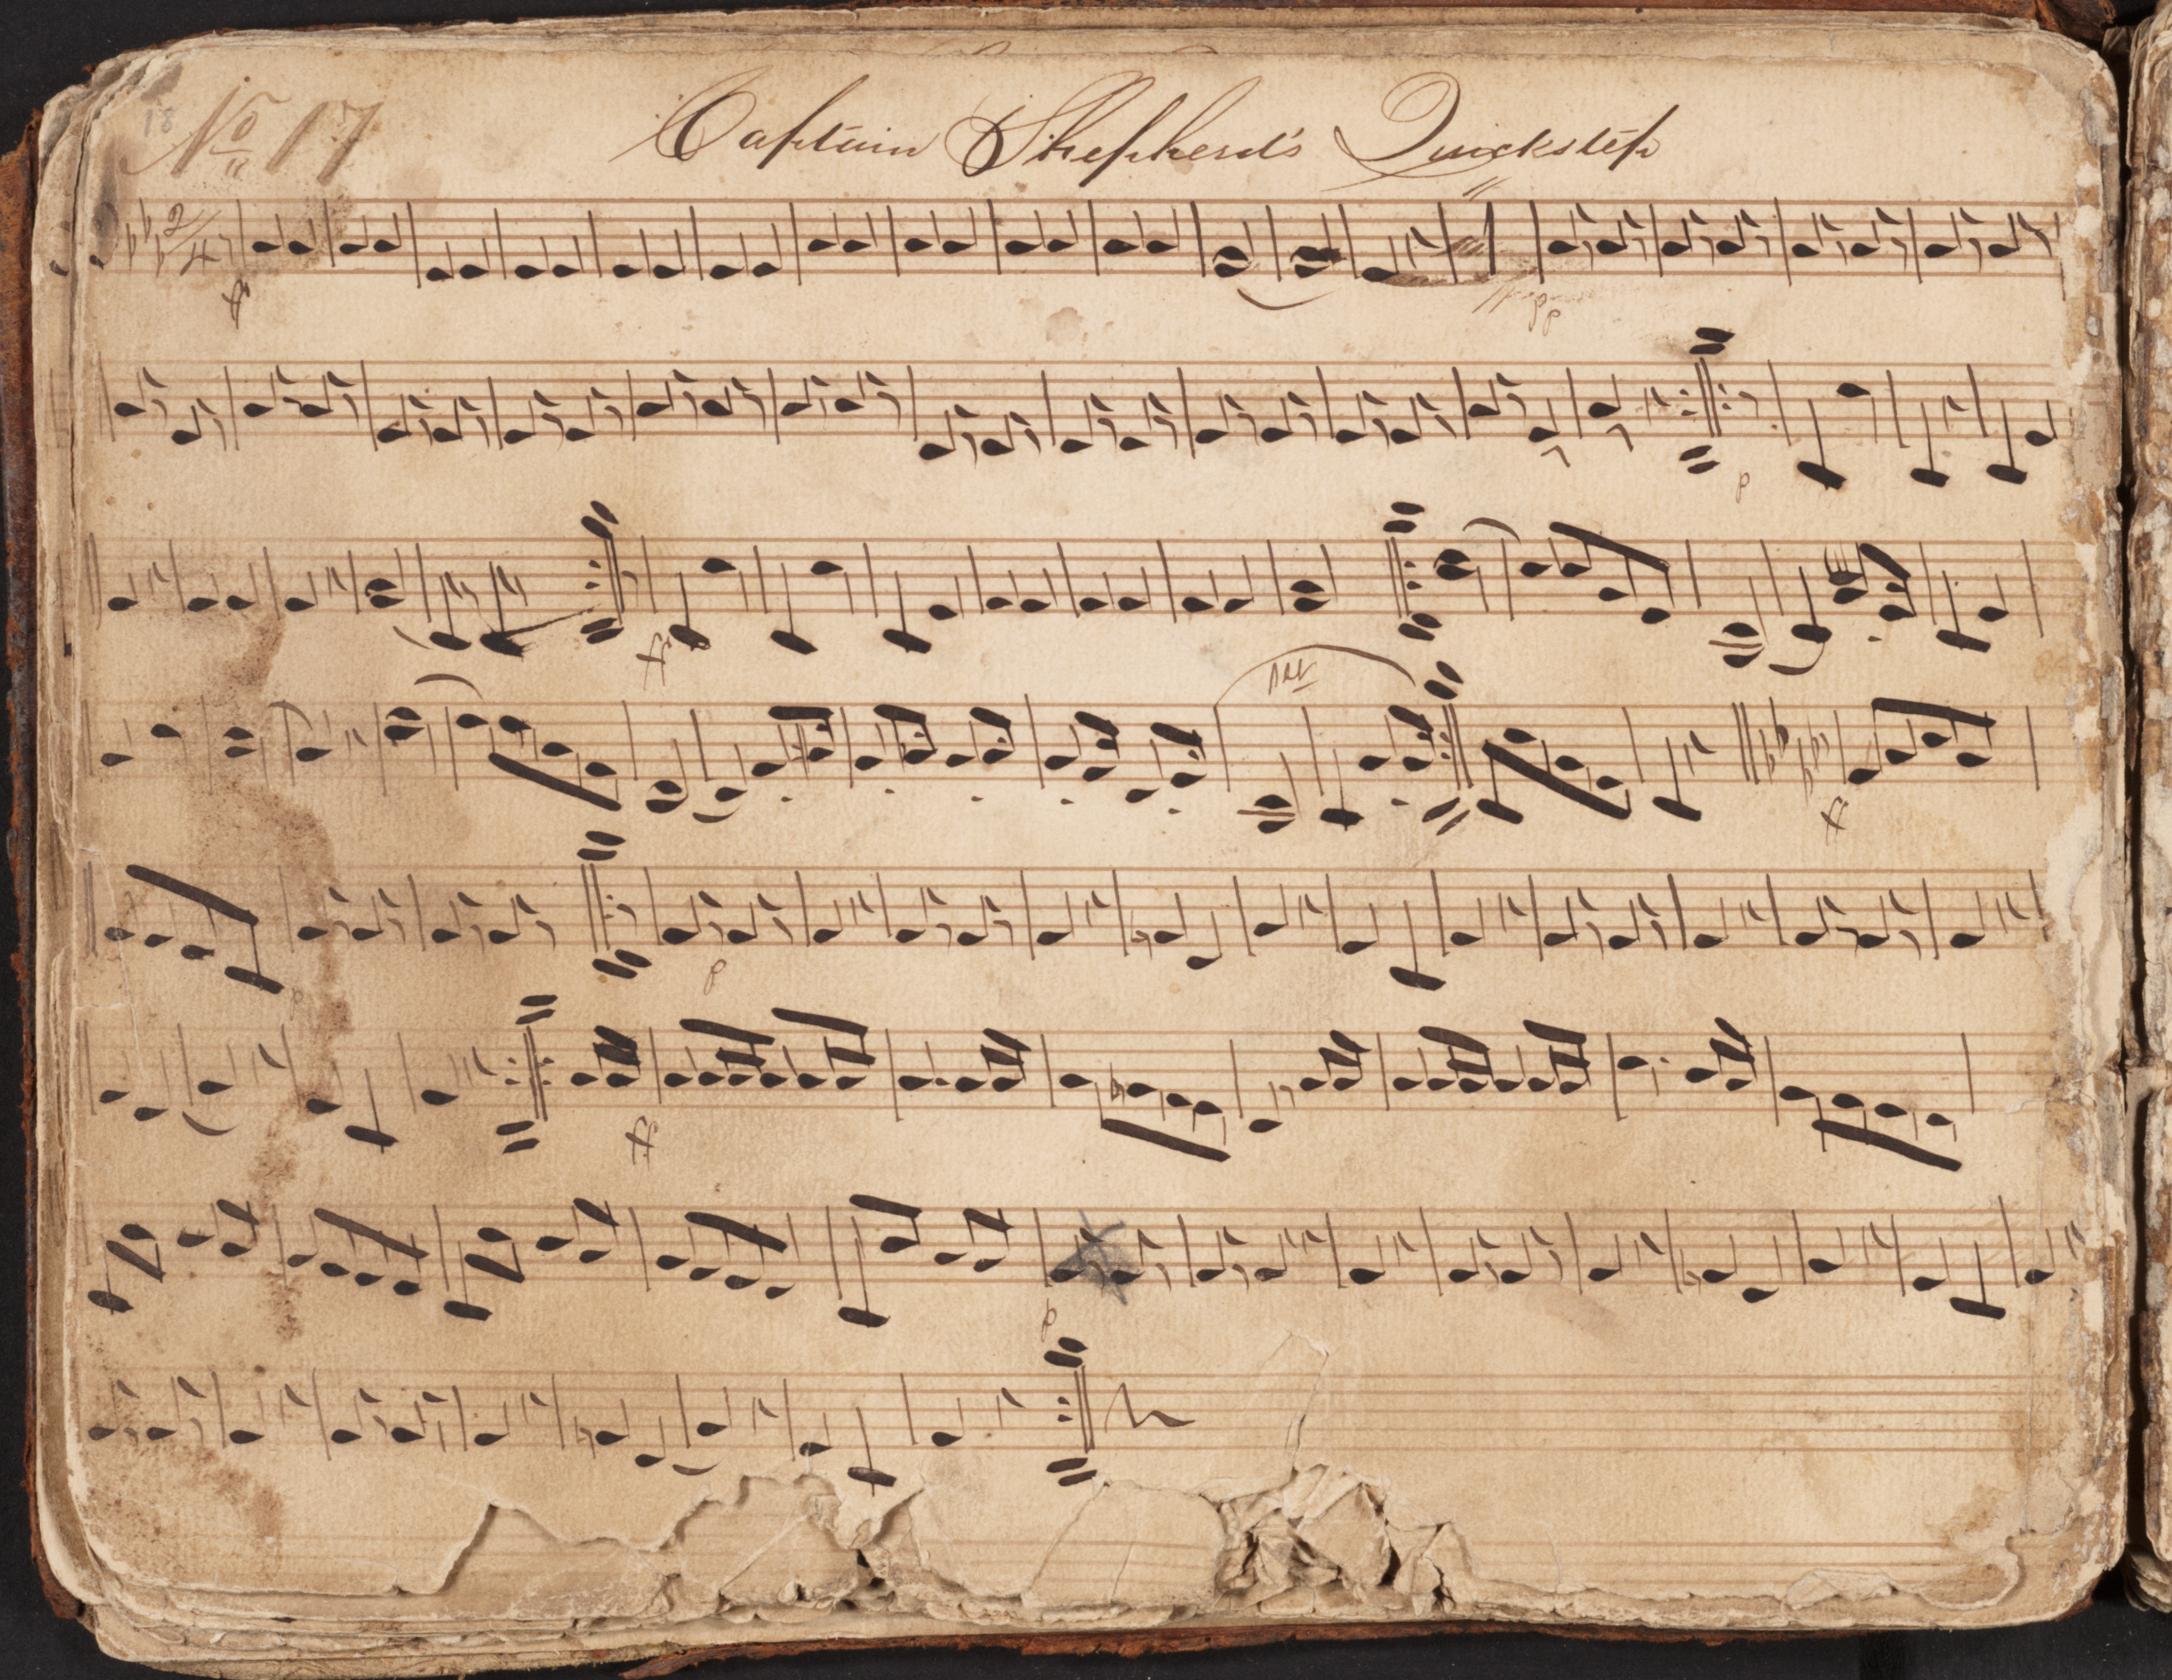 18 No 17 Captain Shepherd's Quickstep
2/4
p
pp
p
p
p
p